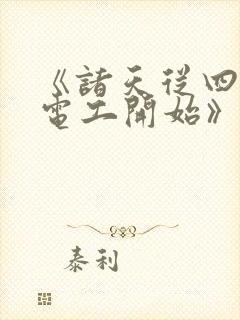 《諸天從四
電工開始》
泰利